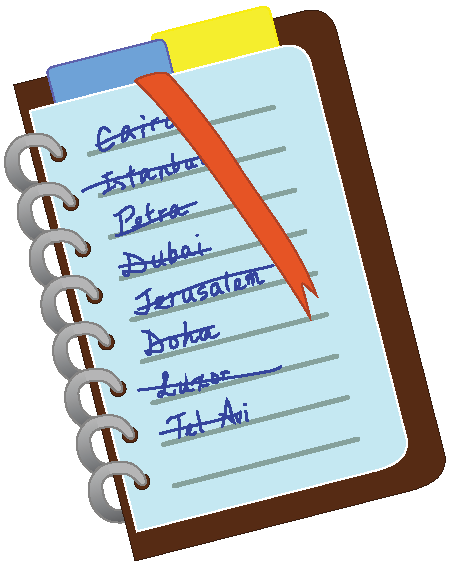 Cairo
Istanbul
Petra
Dubai
Jerusalem
Doha
Luxor
Tel Avi